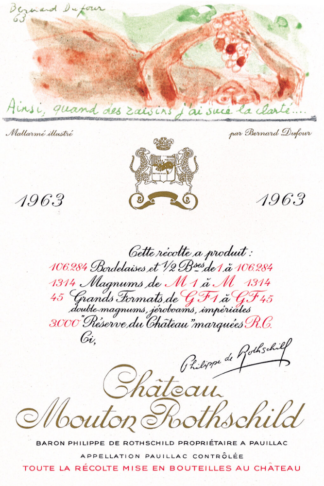 Bernard Dufour
63
Ainsi, quand des raisins j'ai sucé la clarté....
Mallarmé illustré
par Bernard Dufour
1963
1963
Cette récolte a produit :
106284 Bordelaises et 1/2 Bses de 1 à 106284
1314 Magnums de M 1 à M 1314
45 Grands Formats de G F 1 à G F 45
double-magnums, jéroboams, impériales
3000 "Réserve du Château" marquées R.C.
Ci,
Philippe de Rothschild
Château
Mouton Rothschild
BARON PHILIPPE DE ROTHSCHILD PROPRIÉTAIRE A PAUILLAC
APPELLATION PAUILLAC CONTRÔLÉE
TOUTE LA RÉCOLTE MISE EN BOUTEILLES AU CHÂTEAU